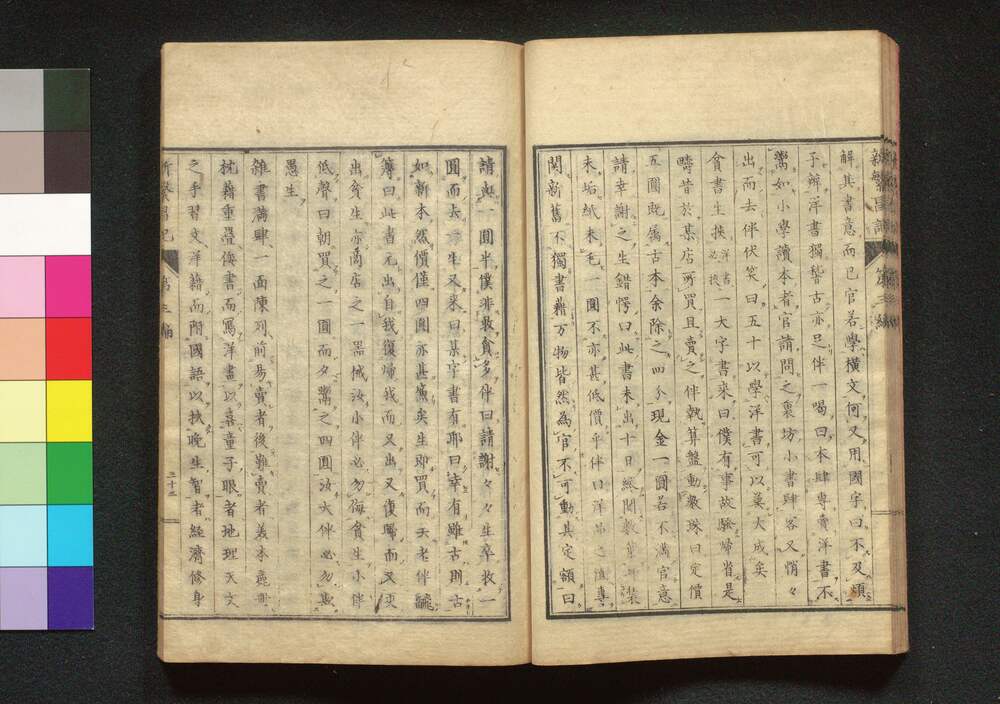 解其書意而已官若學橫文何又用國字曰不及煩
子辨洋書獨咎古亦足伴一喝曰本肆專賣洋書不
鬻如小學讀本者官請問之裏坊小書肆客又悄々
出而去伴伏笑曰五十以學洋書可以奚大成矣
貧書生挾洋書必挾一大字書來曰僕有事故發歸省是
疇昔於某店所買且賣之伴執算盤動數珠曰定價
五圓既屬古本余除之四分現金一圓若不滿官意
請幸謝之生錯愕曰此書未出十日經閱數葉耳裝
未垢紙未毛一圓不亦甚低價乎伴曰洋書之
関新舊不獨書藉万物皆然為官不可動其定額曰
請與一圓半僕非敢貪多伴曰請謝々々生卒收一
圓而去生又来曰某字書有耶曰幸有雖古則古
如新本然價僅四圓亦甚廉矣生即買而去老伴
簿曰此書元出自我復歸我而又出又復歸而又
出貧生亦商店之一器械汝小伴必勿侮貧生小伴
低聲曰朝買之一圓而夕鬻之四圓汝大伴必勿欺
愚生
雜書滿肆一面陳列前易賣者後難賣者美本
枕藉重疊倭書而寫洋畫以喜童子眼者地理天文
之手習文洋藉而附國語以扶晚生智者經濟修身
第三編
二十三